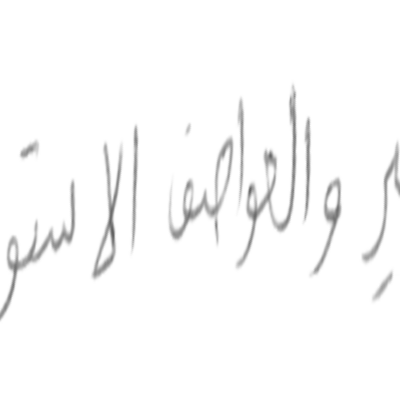 ير والعواصف الاستو